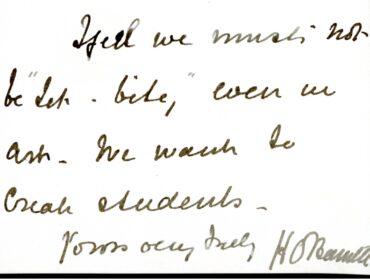 I feel we must not
be "tit-bity," even in
art. We want to
Create students.
Yours very truly H O Barnett